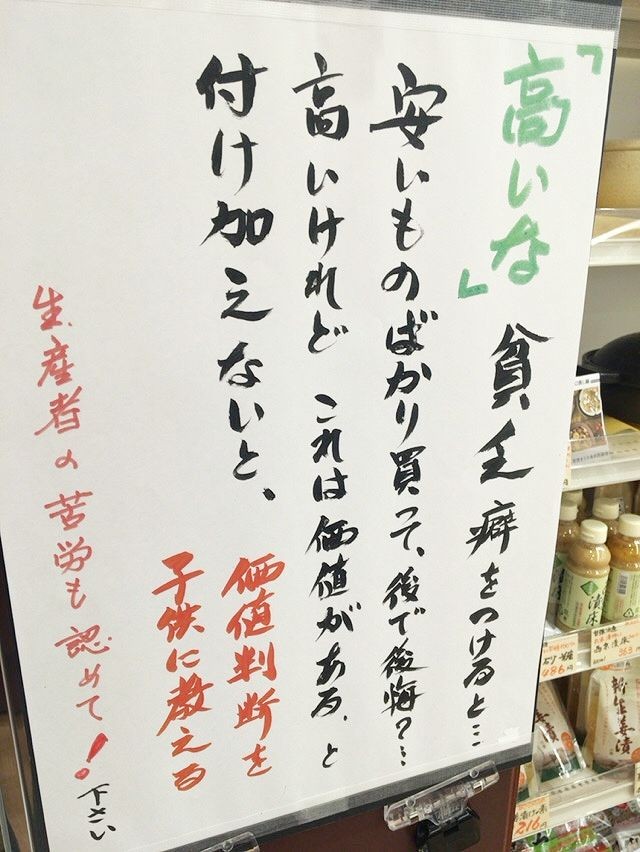 「高いな」貧乏癖をつけると…
安いものばかり買って、後で後悔？…
高いけれど これは価値がある、と
付け加えないと、
価値判断を
子供に教える
生産者の苦労も認めて！下さい
漬床
486円
363円
216円